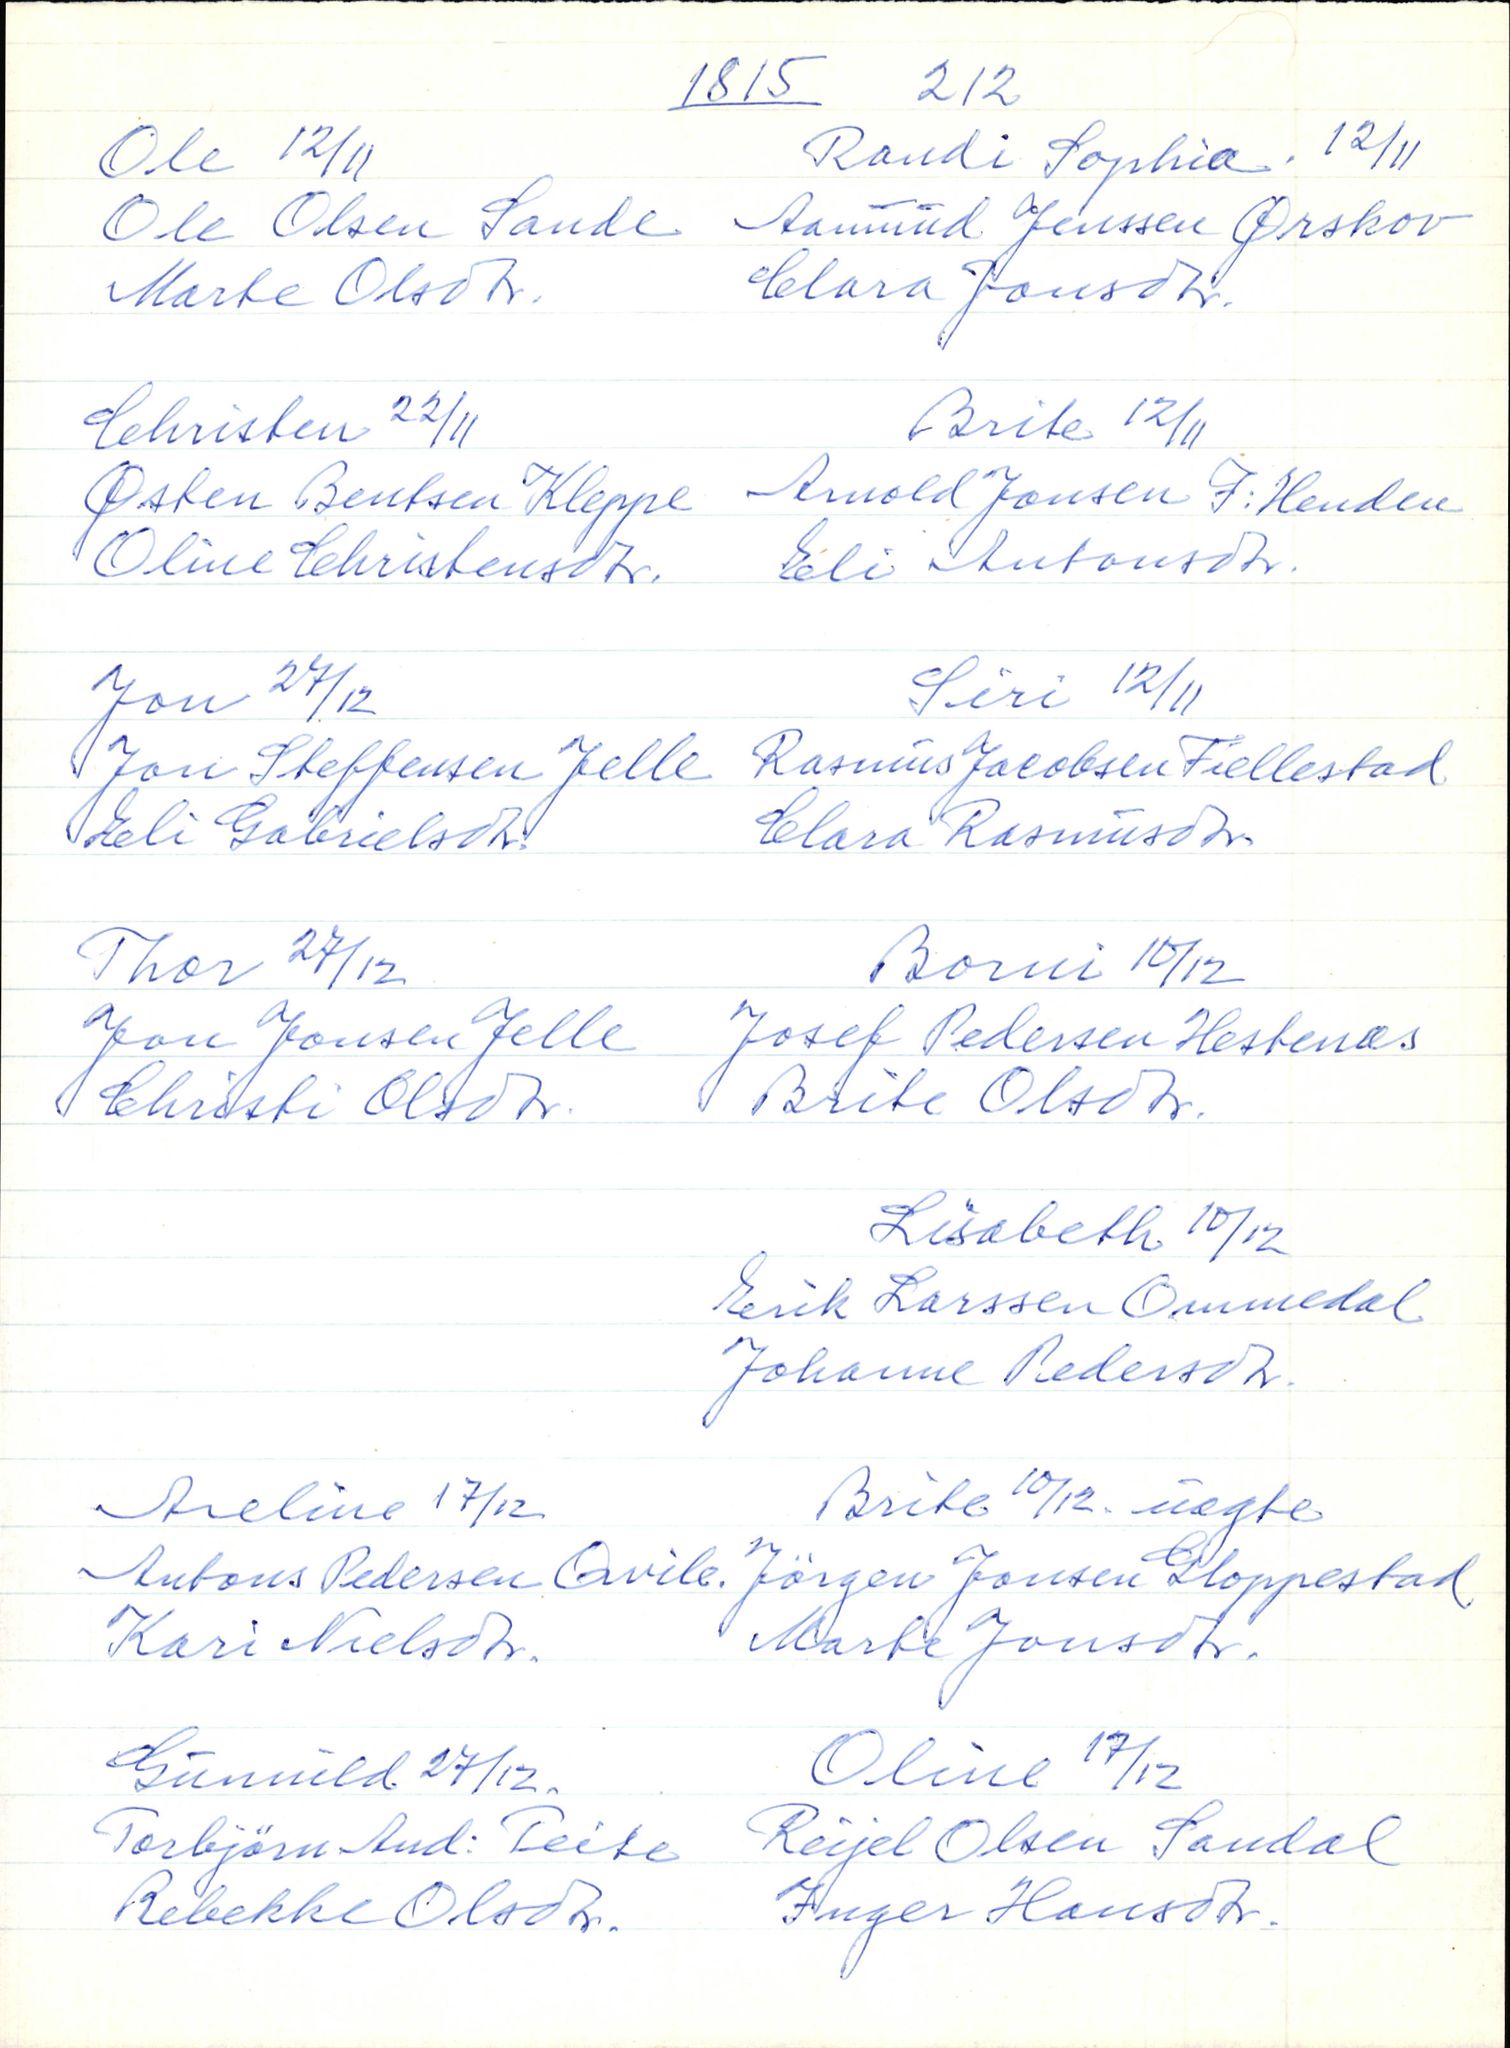 1815 212
Ole 12/11
Ole Olsen Sande
Marte Olsdtr.
Randi Sophia. 12/11
Aamund Jenssen Ørskov
Clara Jonsdtr.
Christen 22/11
Østen Bentsen Kleppe
Oline Christensdtr.
Brite 12/11
Arnold Jonsen F: Henden
Eli Antonsdtr.
Jon 27/12
Jon Steffensen Jelle
Eli Gabrielsdtr.
Siri 12/11
Rasmus Jacobsen Fiellestad
Clara Rasmusdtr.
Thor 27/12
Jon Jonsen Jelle
Christi Olsdtr.
Borni 10/12
Josef Pedersen Hestenæs
Brite Olsdtr.
Lisabeth 10/12
Erik Larssen Ommedal
Johanne Pedersdtr.
Axeline 17/12
Antons Pedersen Qvile.
Kari Nielsdtr.
Brite 10/12. uægte
Jörgen Jonsen Gloppestad
Marte Jonsdtr.
Gunnild 27/12.
Torbjörn And: Teite
Rebekke Olsdtr.
Oline 17/12
Reijel Olsen Sandal
Inger Hansdtr.